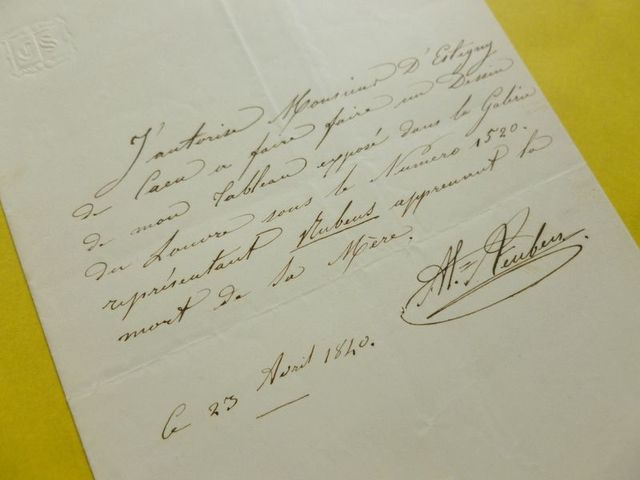 GS
J'autorise Monsieur D'Estigny
de Caen a faire faire un Dessin
de mon Tableau exposé dans la Galerie
du Louvre sous le Numero 1520.
représentant Rubens apprenant la
mort de sa Mère.
Al= Neubers.
Ce 23 Avril 1840.